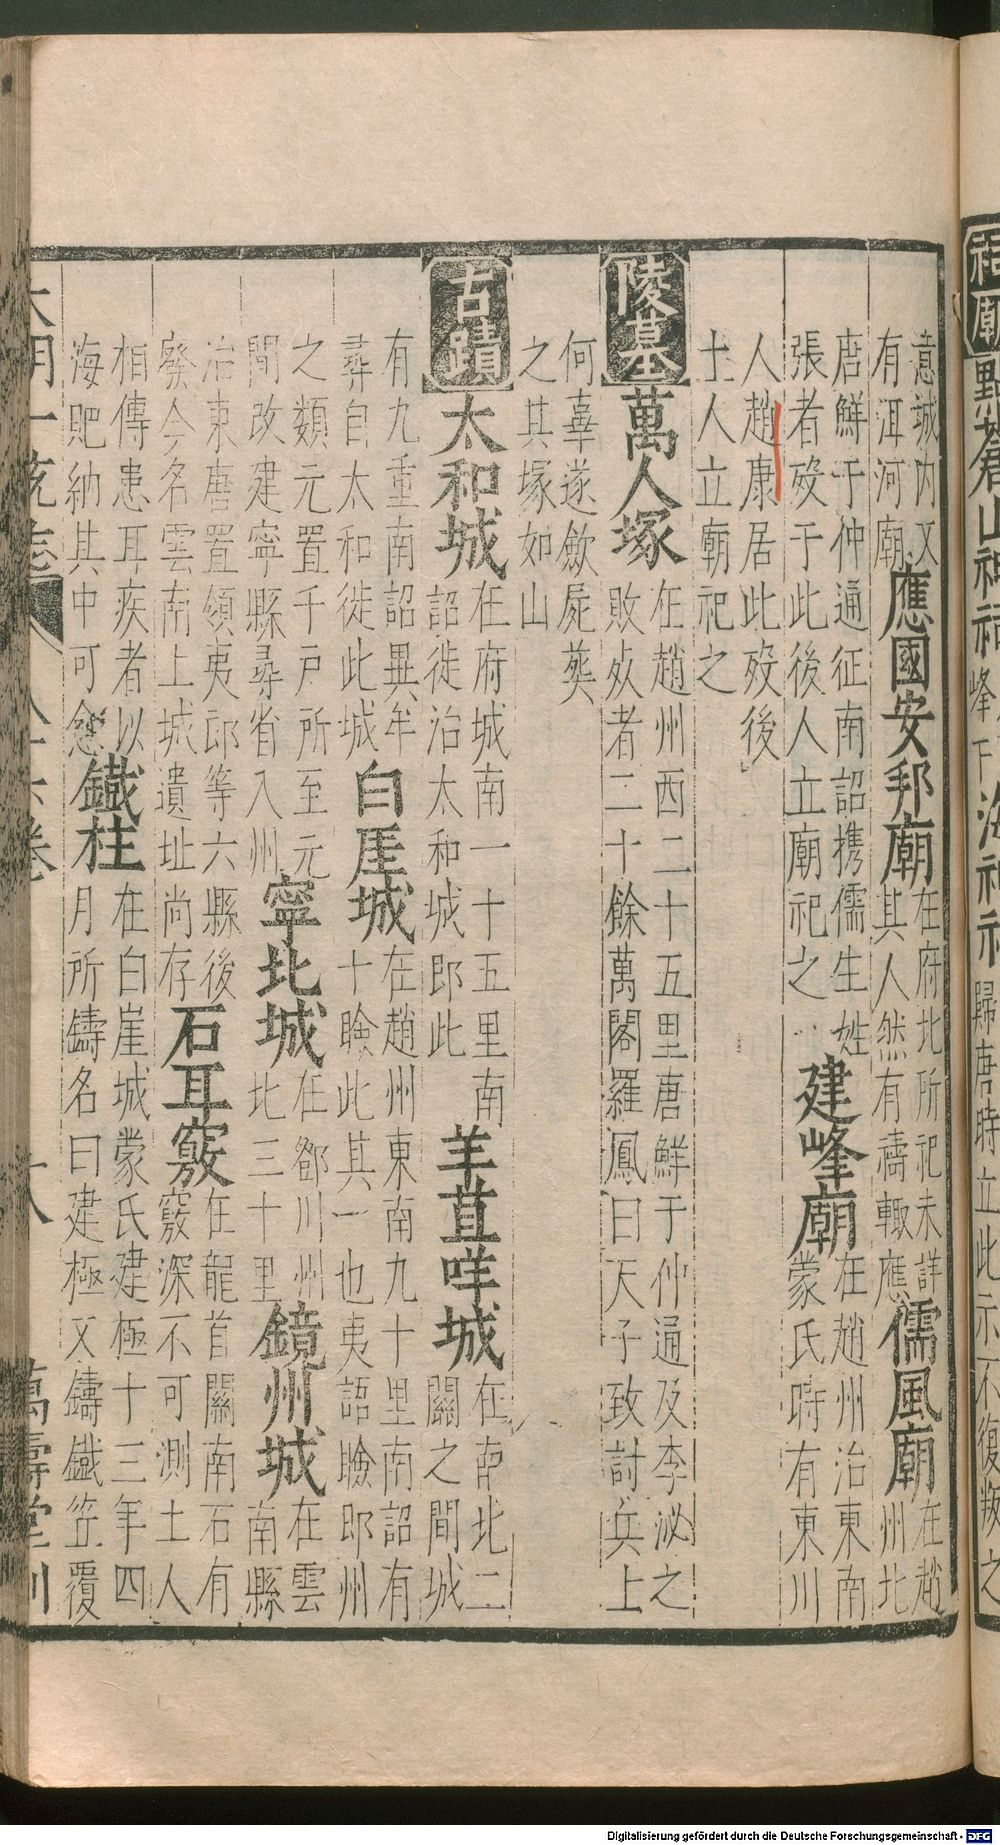 祠廟點蒼山神祠
峰下
海神祠
歸唐時立此示不復叛之
意城內又
有洱河廟
應國安邦廟
在府北所祀未詳
其人然有禱輒應
儒風廟
在趙
州北
唐鮮于仲通征南詔携儒生姓
張者歿于此後人立廟祀之
建峰廟
在趙州治東南
蒙氏時有東川
人趙康居此歿後
土人立廟祀之
陵墓
萬人塚
在趙州西二十五里唐鮮于仲通及李泌之
敗死者二十餘萬閣羅鳳曰天子致討兵上
何辜遂歛屍葬
之其塚如山
古蹟
太和城
在府城南一十五里南
詔徙治太和城即此
羊苴咩城
在南北二
關之間城
有九重南詔異牟
尋自太和徙此城
白厓城
在趙州東南九十里南詔有
十瞼此其一也夷語瞼即州
之類元置千戶所至元
間改建寧縣尋省入州
寧北城
在鄧川州
北三十里
鏡州城
在雲
南縣
治東唐置領夷郎等六縣後
廢今名雲南上城遺址尚存
石耳竅
在龍首關南石有
竅深不可測土人
相傳患耳疾者以
海肥納其中可愈
鐵柱
在白崖城蒙氏建極十三年四
月所鑄名曰建極又鑄鐵笠覆
大明一統志
十八
萬壽堂刊
Digitalisierung gefördert durch die Deutsche Forschungsgemeinschaft - DFG